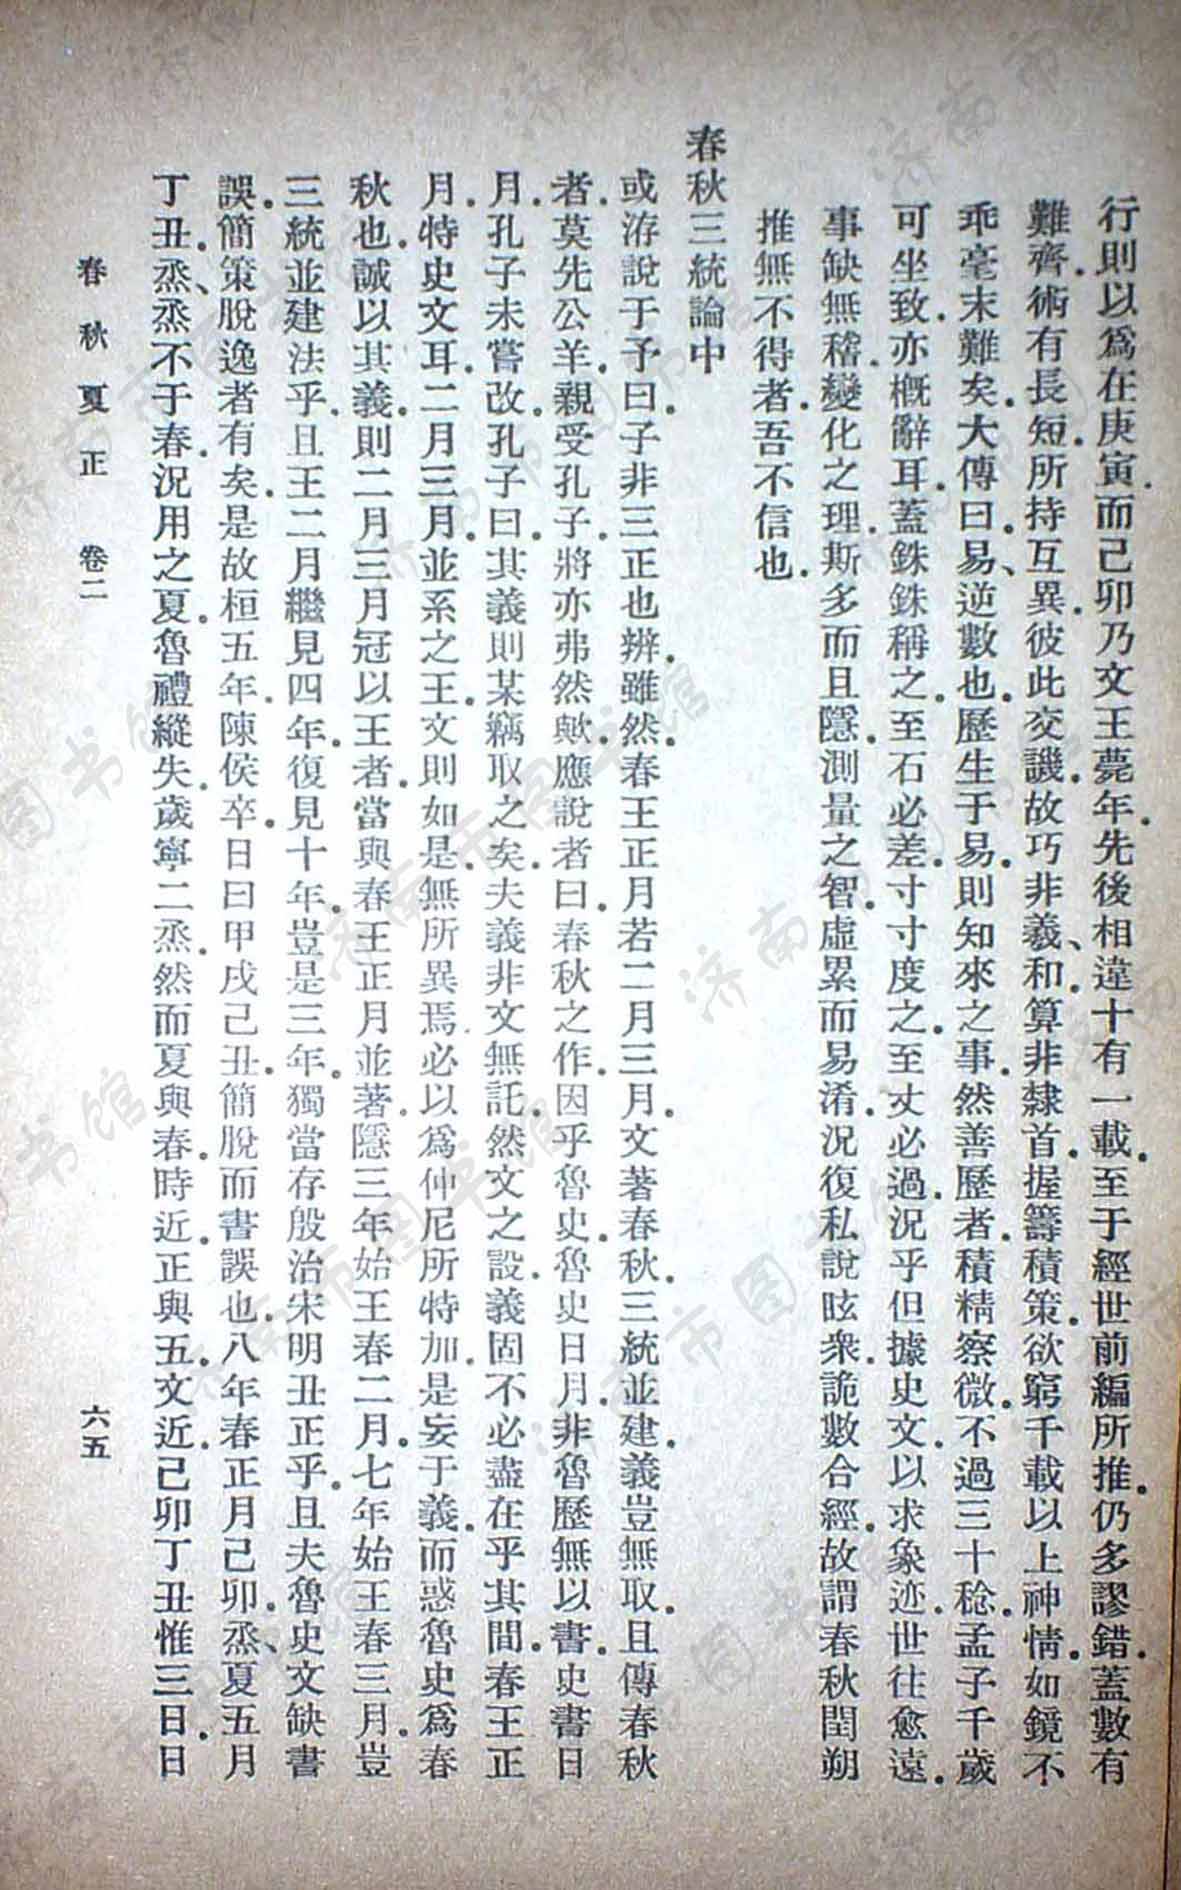 行則以爲在庚寅.而己卯乃文王薨年.先後相違十有一載.至于經世前編所推.仍多謬錯.蓋數有
難齊.術有長短.所持互異.彼此交譏.故巧非義、和.算非隸首.握籌積策.欲窮千載以上.神情如鏡.不
乖毫末難矣.大傳曰.易、逆數也.歷生于易.則知來之事.然善歷者.積精察微.不過三十稔.孟子千歲
可坐致.亦概辭耳.蓋銖銖稱之.至石必差.寸寸度之.至丈必過.況乎但據史文.以求象迹.世往愈遠.
事缺無稽.變化之理.斯多而且隱.測量之智.虛累而易淆.況復私說眩衆.詭數合經.故謂春秋閏朔
推無不得者.吾不信也.
春秋三統論中
或洊說于予曰.子非三正也辨.雖然.春王正月若二月三月.文著春秋.三統並建.義豈無取.且傳春秋
者.莫先公羊.親受孔子.將亦弗然歟.應說者曰.春秋之作.因乎魯史.魯史日月.非魯歷無以書.史書日
月.孔子未嘗改.孔子曰.其義則某竊取之矣.夫義非文無託.然文之設.義固不必盡在乎其間.春王正
月.特史文耳.二月三月.並系之王.文則如是.無所異焉.必以爲仲尼所特加.是妄于義.而惑魯史爲春
秋也.誠以其義.則二月三月冠以王者.當與春王正月並著.隱三年始王春二月.七年始王春三月.豈
三統並建法乎.且王二月繼見四年.復見十年.豈是三年.獨當存殷治宋明丑正乎.且夫魯史文缺書
誤.簡策脫逸者有矣.是故桓五年.陳侯卒.日曰甲戌己丑.簡脫而書誤也.八年春正月己卯.烝、夏五月
丁丑.烝、烝不于春.況用之夏.魯禮縱失.歲寧二烝.然而夏與春.時近.正與五.文近.己卯丁丑惟三日.日
春秋夏正 卷二 六五